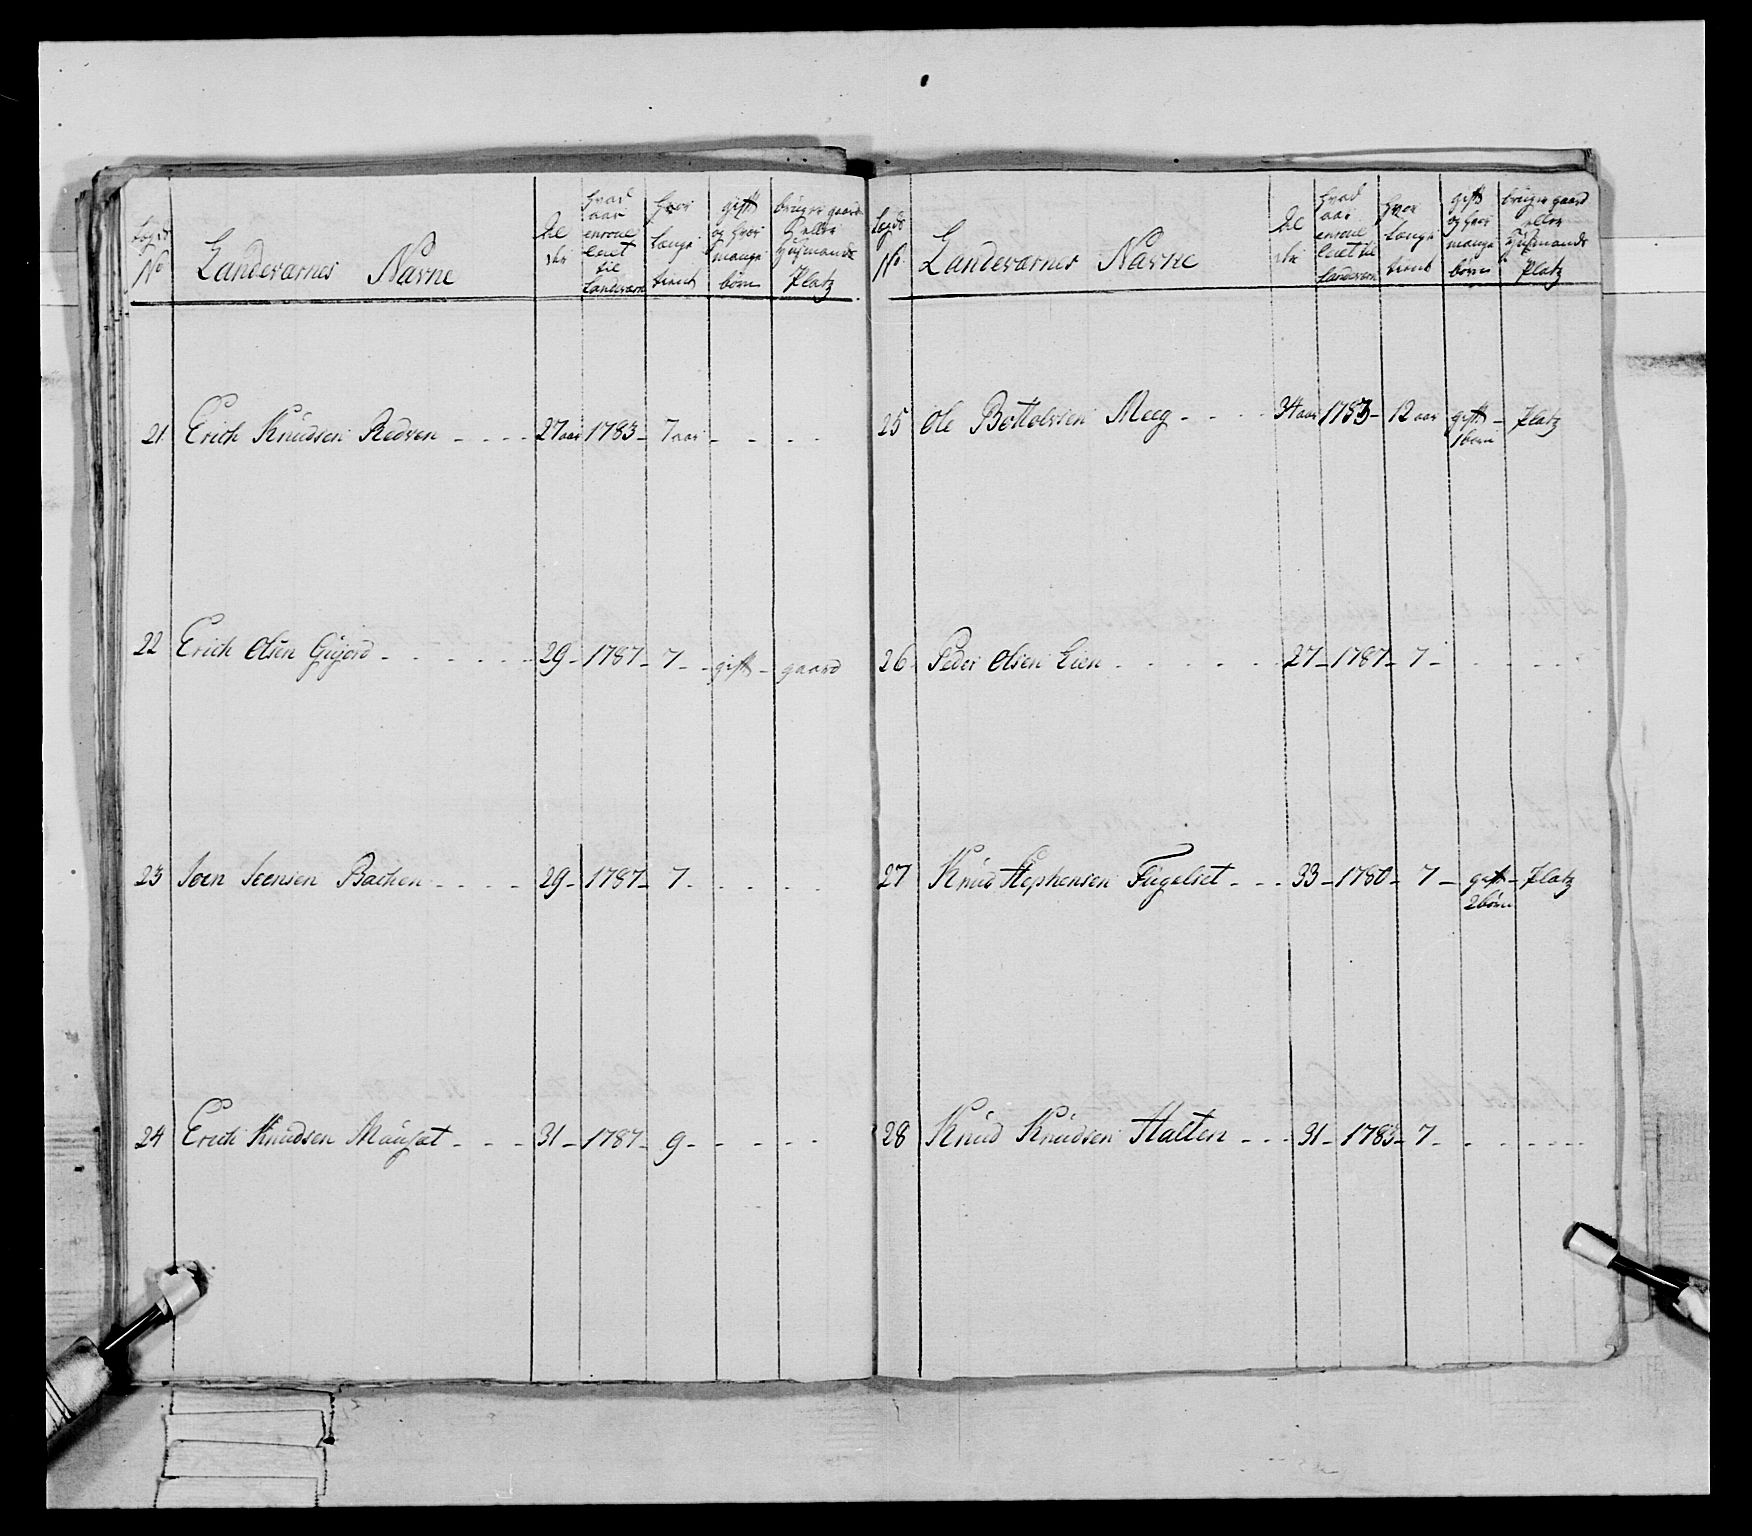 Lægds No | Landeværnes Navne | Al der | hvad aar enroulleret til Landeværn | hvor længe tient | gift og hvor mange børn | bruger gaard eller Huusmands Platz
21 Erich Knudsen Rødven - - - - 27 aar 1783 - 7 aar - - - -
22 Erich Olsen Gujord - - - - - - 29 - 1787 - 7 - - gift - gaard
23 Joen Joensen Bachen - - - - 29 - 1787 - 7 - - - -
24 Erich Knudsen Mausat - - - - 31 - 1787 - 9 - - - - -
Lægds No | Landeværnes Navne | Al der | hvad aar enroulleret til Landeværn | hvor længe tient | gift og hvor mange børn | bruger gaard eller Huusmands Platz
25 Ole Bottolvsen Meeg - - - - 34 aar 1783 - 12 aar gift - Platz
1 børn
26 Peder Olsen Lien - - - - - - 27 - 1787 - 7 - - - - -
27 Knud Stephensen Fugelset - - - 33 - 1780 - 7 - gift - Platz
2 børn
28 Knud Knudsen Halten - - - 31 - 1783 - 7 - - - - - -